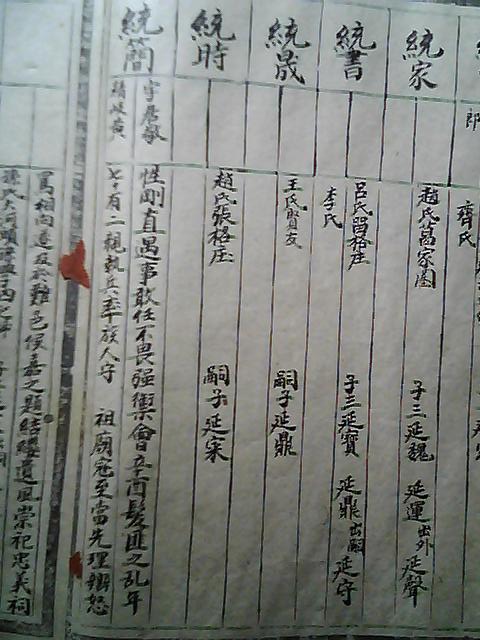 郎
齊氏
統家
趙氏葛家圈
子三延魏 延運出外 延聲
統書
呂氏留格庄
李氏
子三延寶 延鼎出嗣 延守
統晟
王氏賢友
嗣子延鼎
統時
趙氏張格庄
嗣子延寀
統簡
字居敬
性剛直遇事敢任不畏强禦會辛酉髮匪之乱年
七十有二親執兵率族人守 祖廟寇至當先理辯怒
罵相向遂及於難邑侯嘉之題結纓遺風崇祀忠義祠